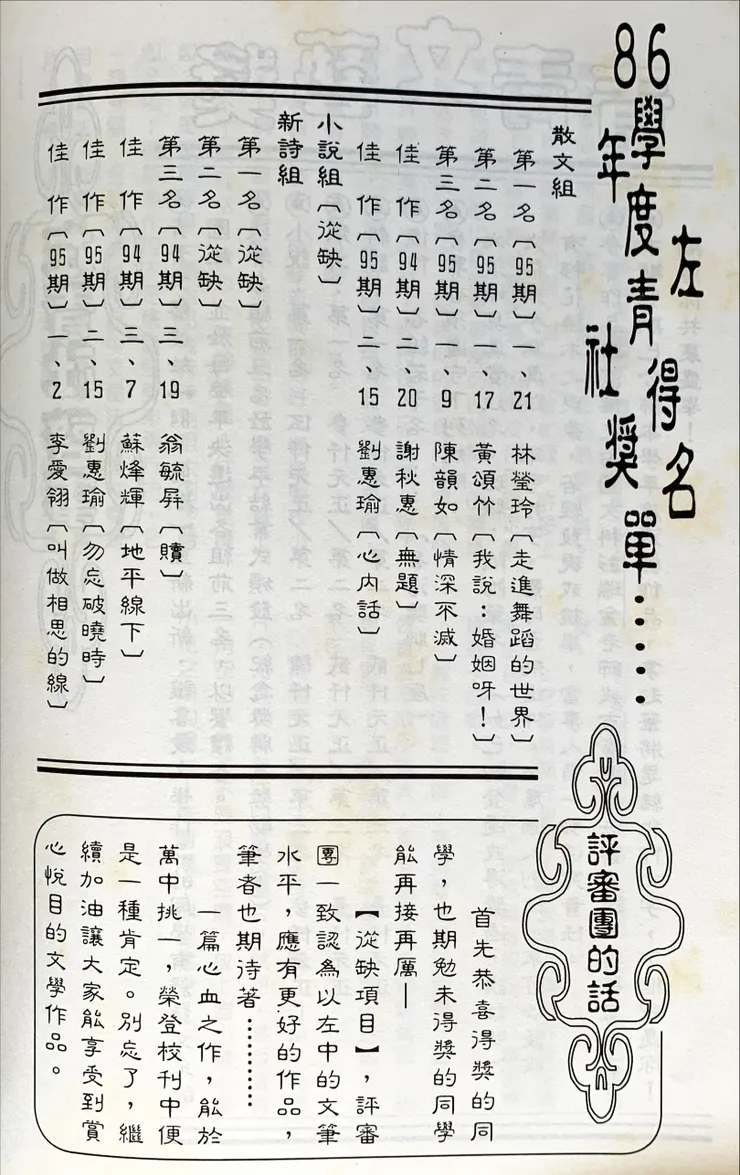 86學年度左青社獎得名單‥‥‥
散文組
第一名〔95期〕一、21 林瑩玲〔走進舞蹈的世界〕
第二名〔95期〕一、17 黃頌竹〔我說：婚姻呀！〕
第三名〔95期〕一、9 陳韻如〔情深不滅〕
佳 作〔94期〕二、20 謝秋惠〔無題〕
佳 作〔95期〕二、15 劉惠瑜〔心內話〕
小說組〔從缺〕
新詩組
第一名〔從缺〕
第二名〔從缺〕
第三名〔94期〕三、19 翁毓屏〔贖〕
佳 作〔94期〕三、7 蘇烽輝〔地平線下〕
佳 作〔95期〕二、15 劉惠瑜〔勿忘破曉時〕
佳 作〔95期〕一、2 李愛翎〔叫做相思的線〕
評審團的話
首先恭喜得獎的同
學，也期勉未得獎的同學
能再接再厲—
【從缺項目】，評審
團一致認為以左中的文筆
水平，應有更好的作品，
筆者也期待著…………
一篇心血之作，能於
萬中挑一，榮登校刊中便
是一種肯定。別忘了，繼
續加油讓大家能享受到賞
心悅目的文學作品。